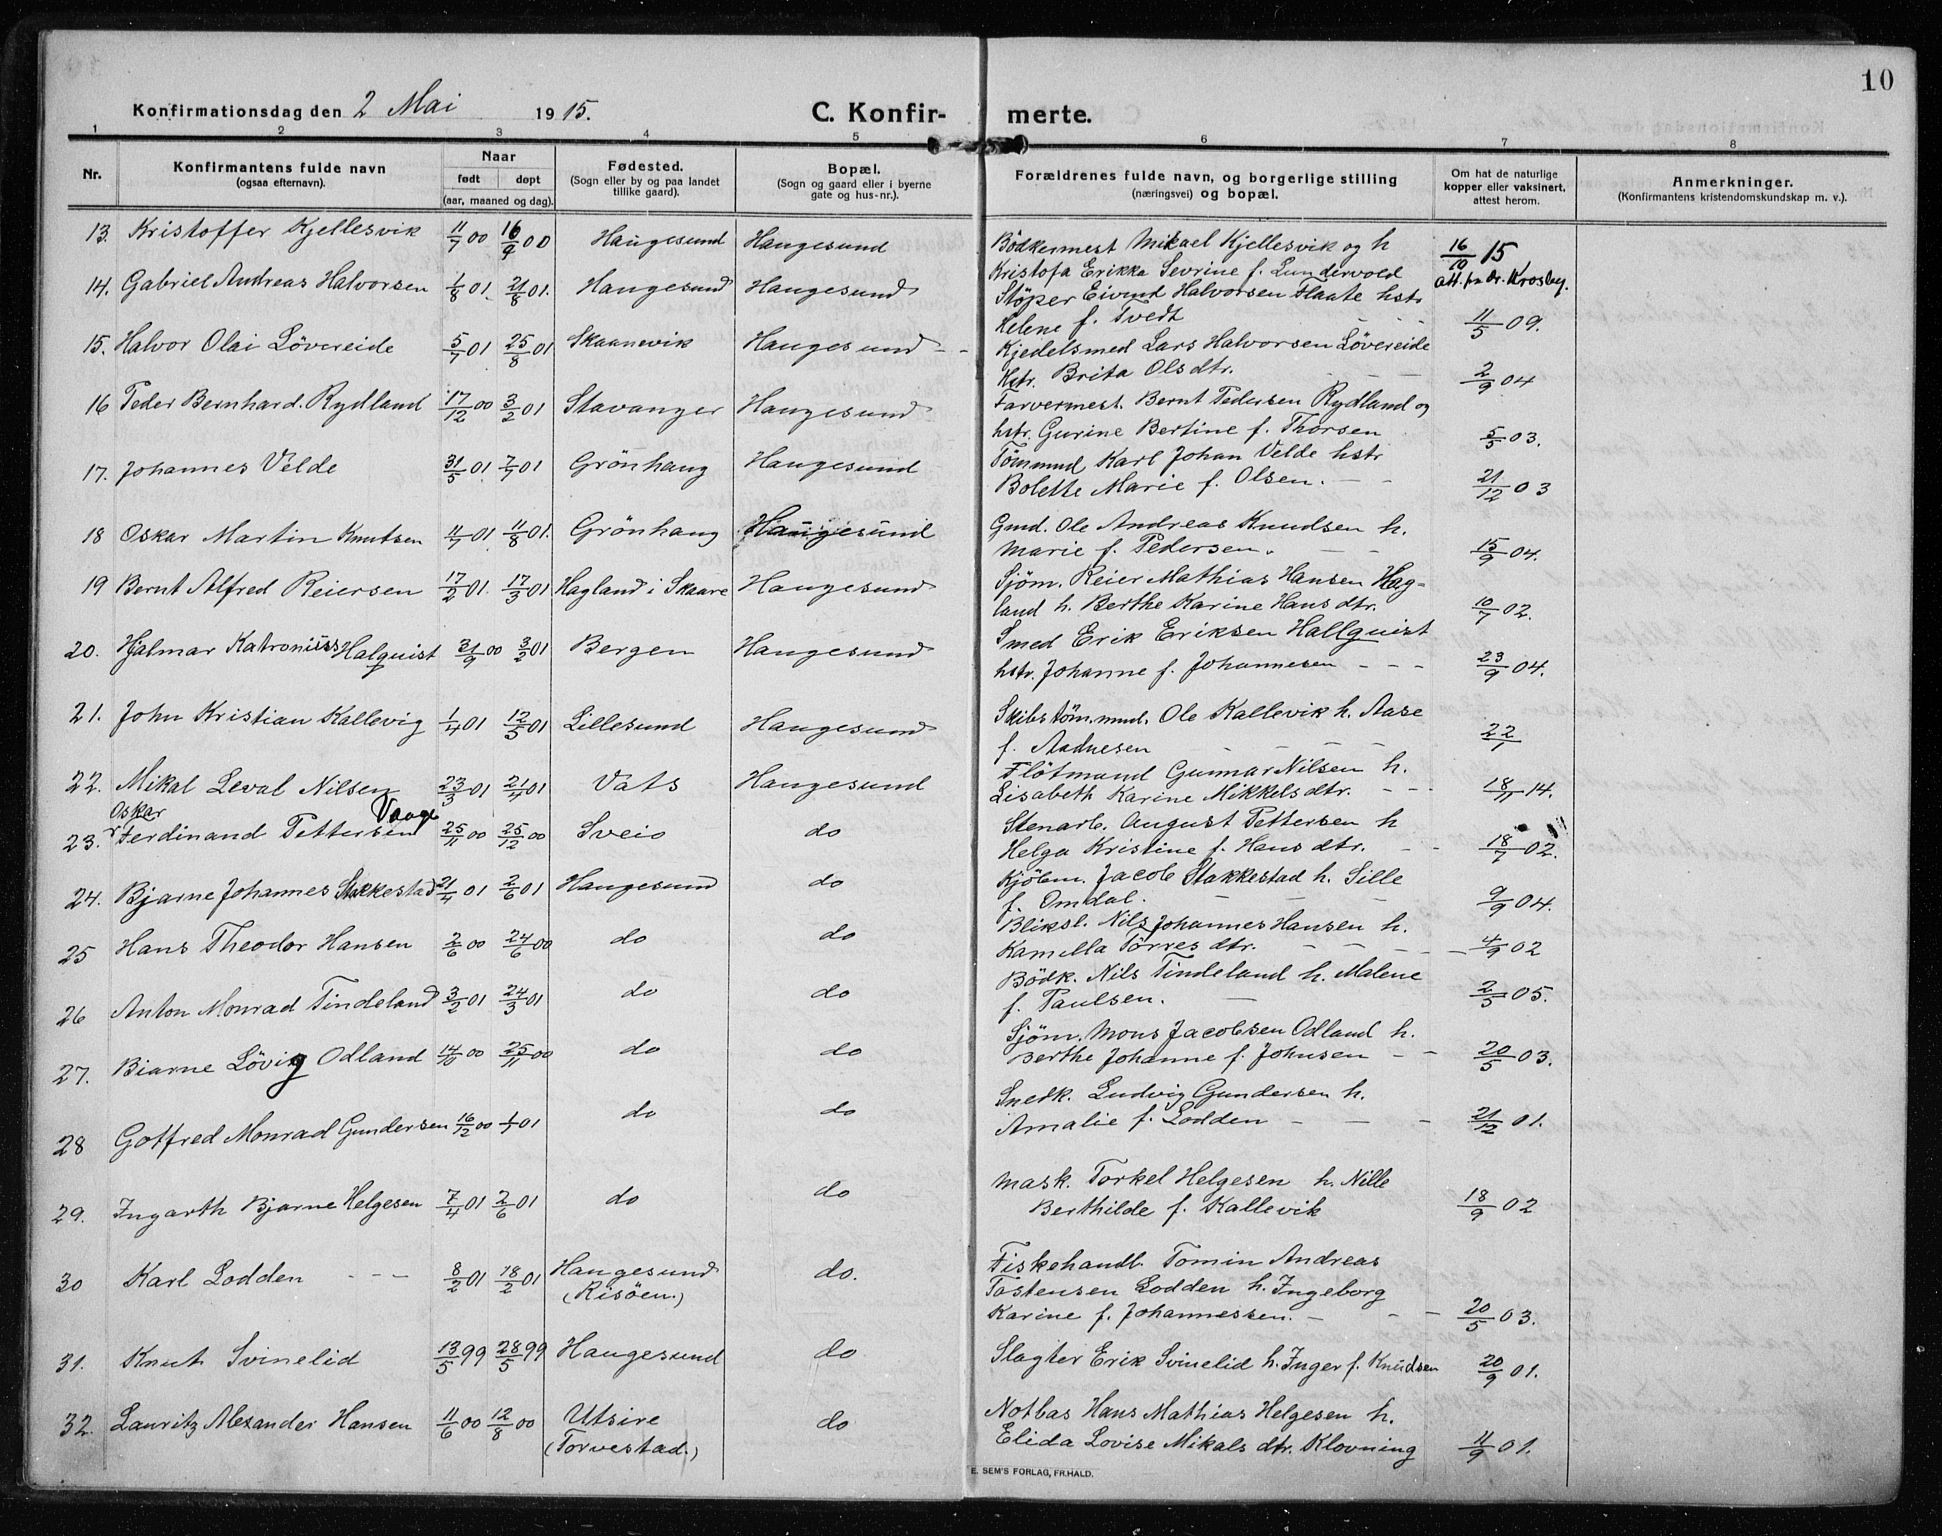 10
Konfirmationsdag den 2 Mai 1915. C. Konfir- merte.
1 2 3 4 5 6 7 8
Nr. Konfirmantens fulde navn (ogsaa efternavn). Naar født døpt (aar, maaned og dag). Fødested. (Sogn eller by og paa landet tillike gaard). Bopæl. (Sogn og gaard eller i byerne gate og hus-nr.). Forældrenes fulde navn, og borgerlige stilling (næringsvei) og bopæl. Om hat de naturlige kopper eller vaksinert, attest herom. Anmerkninger. (Konfirmantens kristendomskundskap m. v.).
13. Kristoffer Kjellesvik 11/7 00 16/9 00 Haugesund Haugesund Bödkermest Mikael Kjellesvik og h 16/10 15
Kristofa Erikka Sevrine f. Lundervold att. fra dr. Krosby.
14. Gabriel Andreas Halvorsen 1/8 01. 21/8 01. Haugesund Haugesund Stöper Eivind Halvorsen Flaate hstr
Helene f. Tvedt 11/5 09.
15. Halvor Olai Lövereide 5/7 01 25/8 01 Skaanevik Haugesund Kjedelsmed Lars Halvorsen Lövereide
Hstr. Brita Olsdtr. 2/9 04
16 Peder Bernhard. Rydland 17/12 00 3/2 01 Stavanger Haugesund Farvermest. Bernt Pedersen Rydland og
hstr. Gurine Bertine f. Thorsen 5/5 03.
17. Johannes Velde 31/5 01. 7/7 01 Grönhaug Haugesund Tömmmd Karl Johan Velde hstr
Bolette Marie f. Olsen. 21/12 03
18 Oskar Martin Knutsen 11/7 01 11/8 01. Grönhaug Haugesund Gmd. Ole Andreas Knudsen h.
Marie f. Pedersen. 15/9 04.
19 Bernt Alfred Reiersen 17/2 01. 17/3 01 Hagland i Skaare Haugesund Sjöm. Reier Mathias Hansen Hag-
land h. Berthe Karine Hansdtr. 10/7 02.
20. Hjalmar Katronius Halquist 31/9 00 3/2 01 Bergen Haugesund Smed Erik Eriksen Hallquist
hstr. Johanne f. Johannesen 23/9 04.
21. John Kristian Kallevig 1/4 01 12/5 01 Lillesund Haugesund Skibstöm.md. Ole Kallevik h. Aase
f. Aadnesen 22/1
22. Mikal Leval Nilsen 23/3 01 21/4 01 Vats Haugesund Flötmand Gunnar Nilsen h.
Lisabeth Karine Mikkelsdtr. 18/11 14.
Oskar
23. Ferdinand Pettersen Vaage 25/11 00 25/12 00 Sveio do Stenarb. August Pettersen h
Helga Kristine f. Hansdtr. 18/7 02.
24. Bjarne Johannes Stakkestad 21/4 01 2/6 01 Haugesund do Kjölem. Jacob Stakkestad h. Sille
f. Omdal. 9/9 04.
25 Hans Theodor Hansen 2/6 00 24/6 00 do do Bliksl. Nils Johannes Hansen h.
Kamilla Törres dtr. 4/9 02
26 Anton Monrad Tindeland 3/2 01 24/3 01 do do Bödk. Nils Tindeland h. Malene
f. Paulsen. 2/5 05.
27. Biarne Lövig Odland 14/10 00 25/11 00 do do Sjöm. Mons Jacobsen Odland h.
Berthe Johanne f. Johnsen 20/5 03.
28 Gotfred Monrad Gundersen 16/12 00 1/1 01 do do Snedk. Ludvig Gundersen h.
Amalie f. Lodden 21/12 01.
29. Ingarth Bjarne Helgesen 7/4 01 2/6 01 do do Mask. Torkel Helgesen h. Nille
Berthilde f. Kallevik 18/9 02
30 Karl Lodden 8/2 01 18/2 01 Haugesund do. Fiskehandl. Tomin Andreas
(Risöen.) Tostensen Lodden h. Ingeborg
Karine f. Johannessen. 20/5 03.
31. Knut Svinelid 13/5 99 28/5 99 Haugesund do Slagter Erik Svinelid h. Inger f. Knudsen 20/9 01.
32. Lauritz Alexander Hansen 11/6 00 12/8 00 Utsire do Notbas Hans Mathias Helgesen h.
(Torvestad.) Elida Lovise Mikals dtr. Klovning 11/9 01.
E. SEM'S FORLAG, FR.HALD.